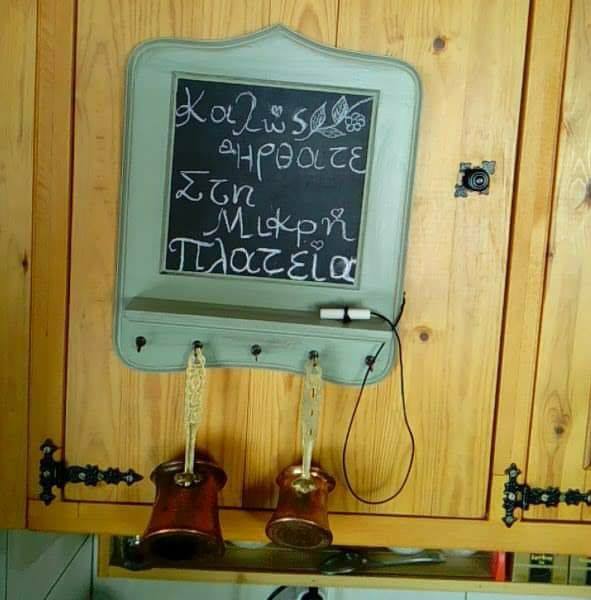 Καλώς
ΗΡθατε
Στη
Μικρή
Πλατεία